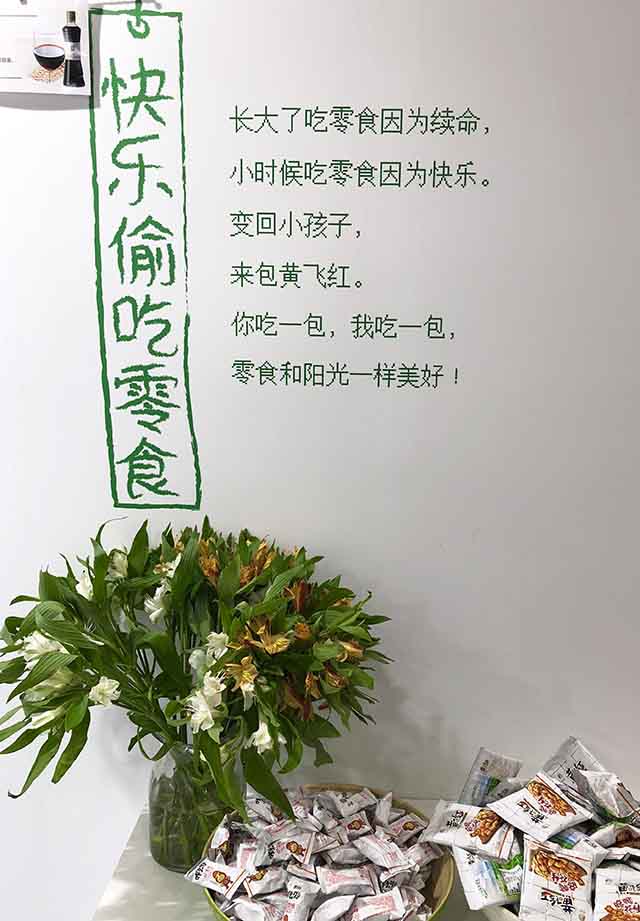 快乐偷吃零食
长大了吃零食因为续命，
小时候吃零食因为快乐。
变回小孩子，
来包黄飞红。
你吃一包，我吃一包，
零食和阳光一样美好！